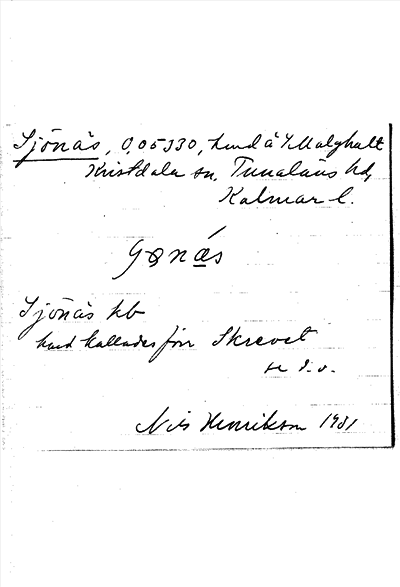 Sjönäs, 0,05330, hmd å 1/1 Malghult
Kristdala sn, Tunaläns hd,
Kalmar l.
Sjönäs hb
hmd kallades förr Skrevet
se d.o.
Nils Henrikson 1931